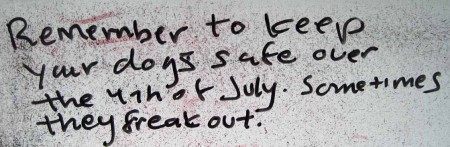 Remember to keep
your dogs safe over
the 4th of July. Sometimes
they freak out.